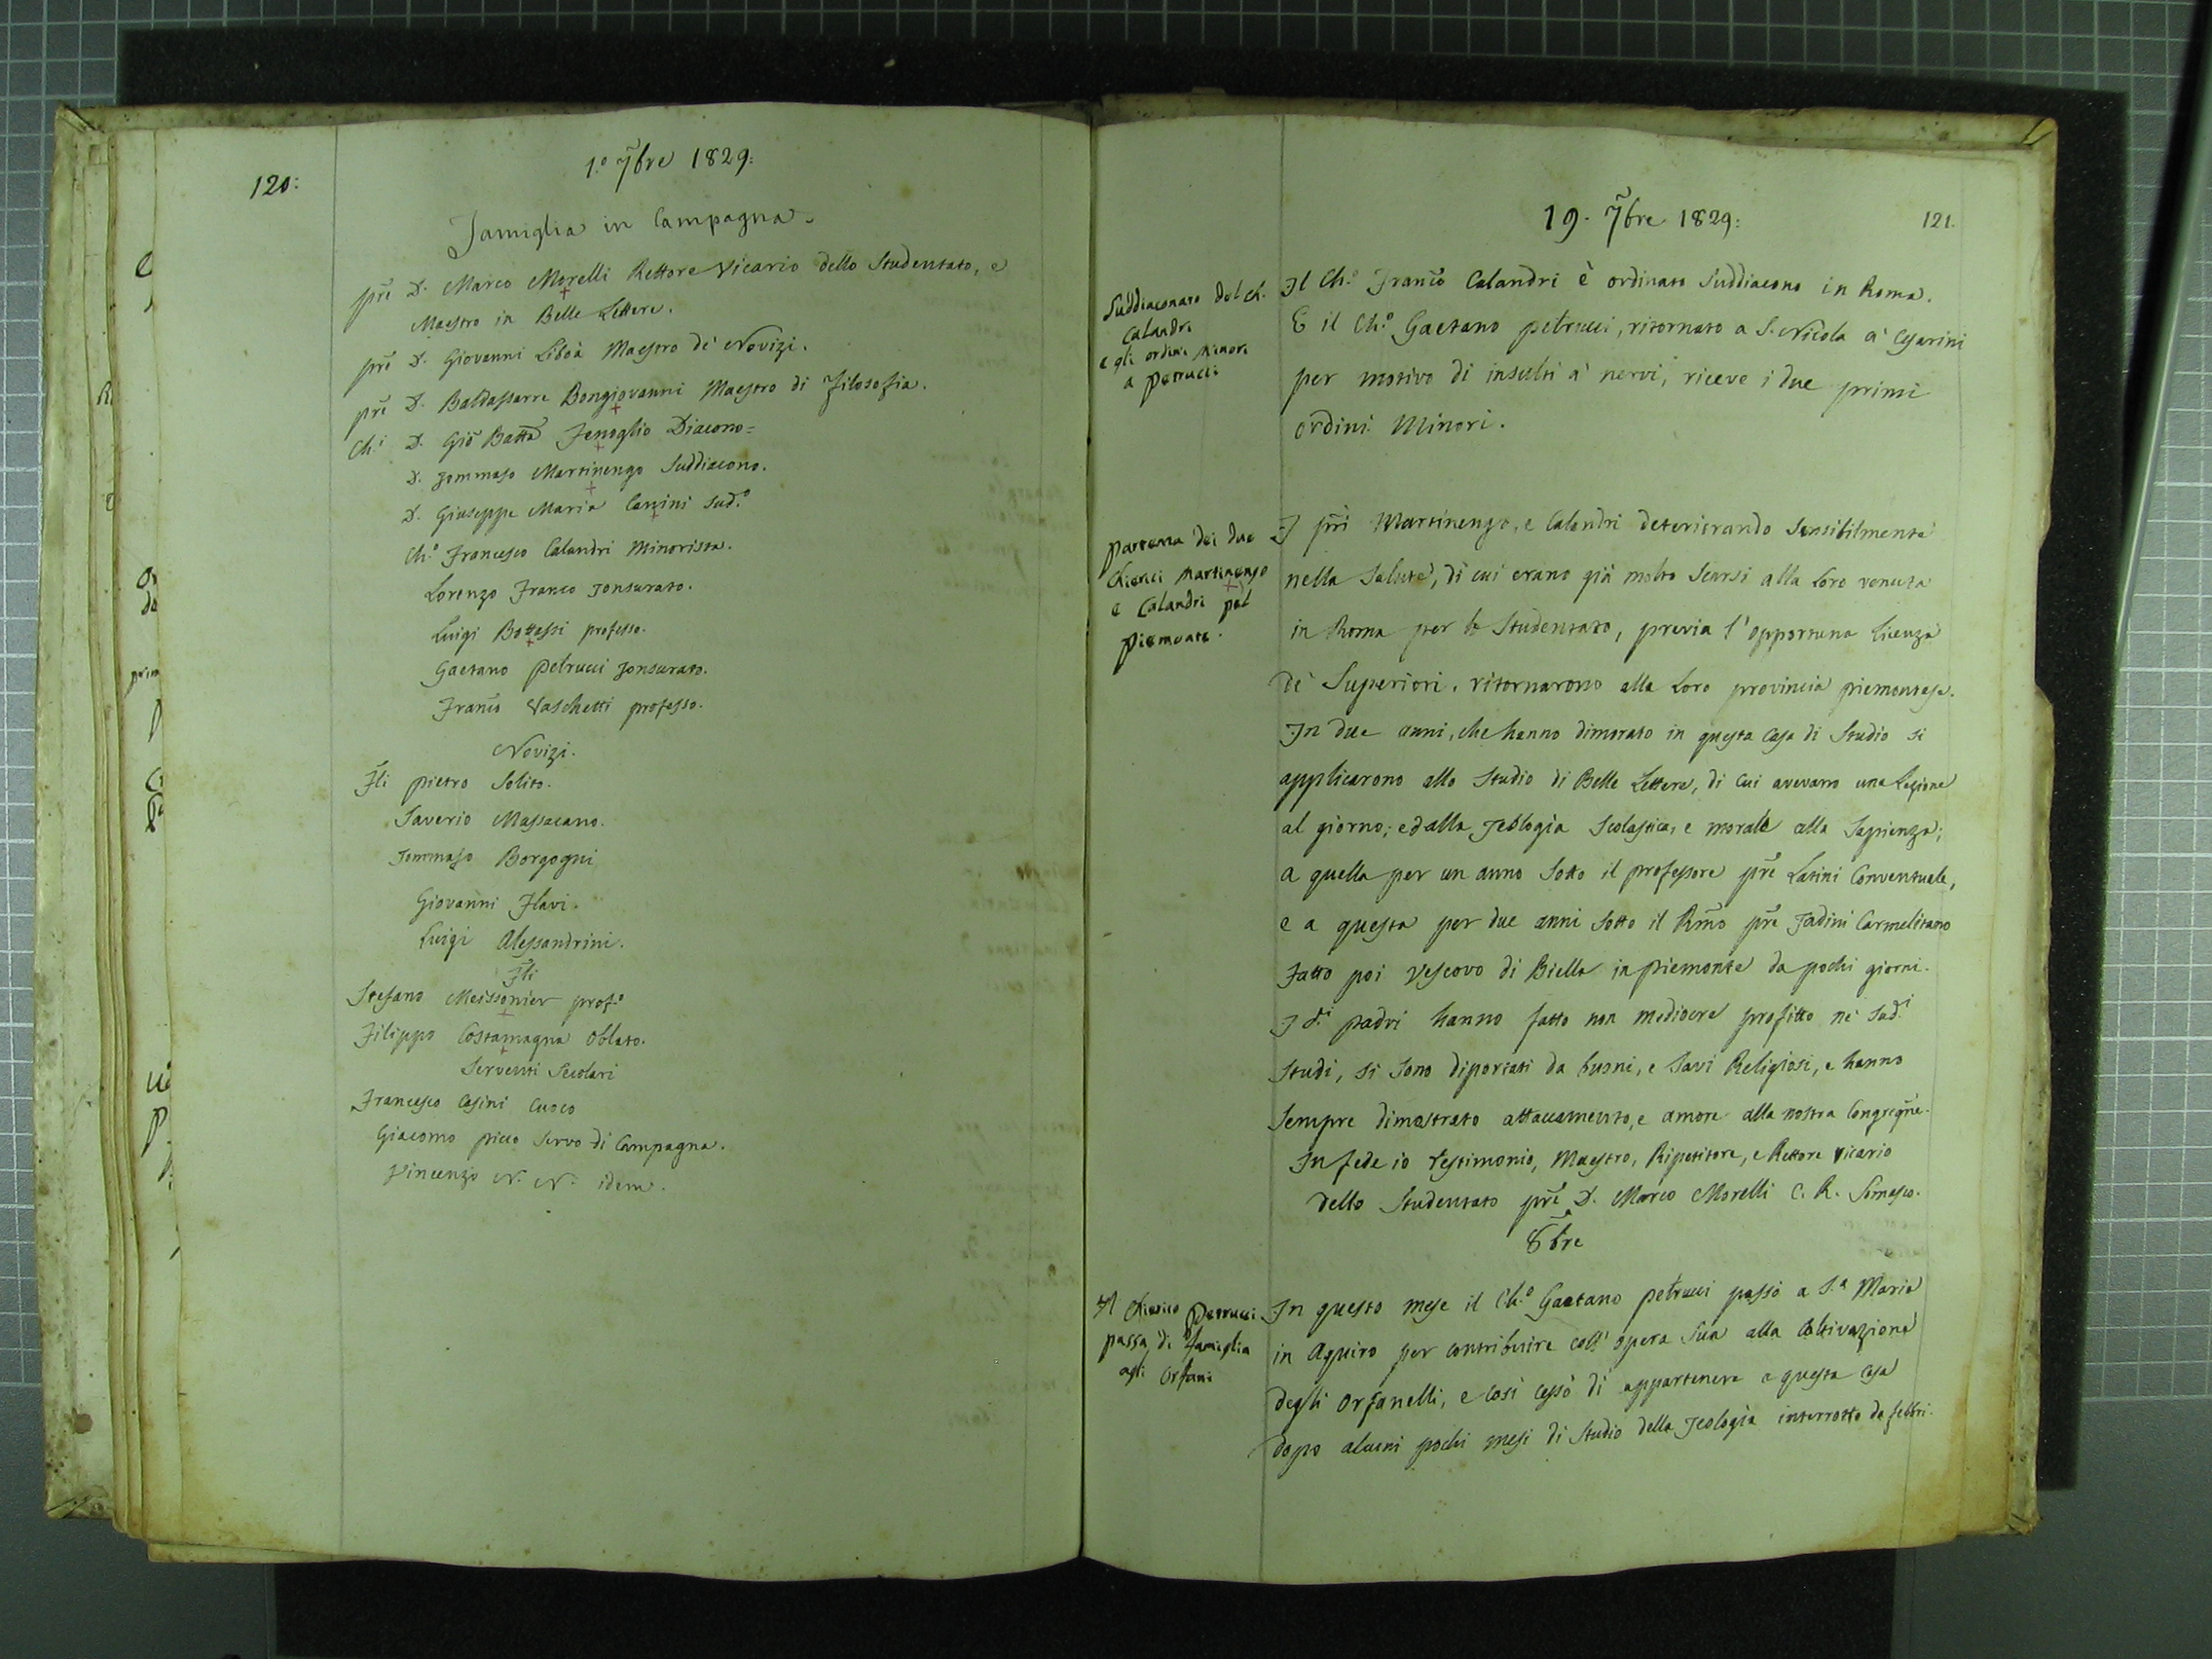 120:
1.º 7bre 1829:
Famiglia in Campagna.
pre D. Marco Morelli Rettore Vicario dello Studentato, e
Maestro in Belle Lettere.
pre D. Giovanni Liboà Maestro de' Novizi.
pre D. Baldassarre Bongiovanni Maestro di Filosofia.
Ch.i D. Gio Batta Fenoglio Diacono=
D. Tommaso Martinengo Suddiacono.
D. Giuseppe Maria Canini Sud.º
Ch.º Francesco Calandri Minorista.
Lorenzo Franco Tonsurato.
Luigi Bottassi professo.
Gaetano Petrucci Tonsurato.
Franco Vaschetti professo.
Novizi.
Flli Pietro Solito.
Saverio Massacano.
Tommaso Borgogni
Giovanni Flavi.
Luigi Alessandrini.
Flli
Stefano Meissonier prof.º
Filippo Costamagna Oblato.
Serventi Secolari
Francesco Casini Cuoco
Giacomo Picco Servo di Campagna.
Vincenzo N. N. idem.
19. 7bre 1829:
121.
Suddiaconato del ch.
Calandri
e gli ordini minori
a Petrucci
Il Ch.º Franco Calandri è ordinato Suddiacono in Roma.
E il Ch.º Gaetano Petrucci, ritornato a S. Nicola a' Cesarini
per motivo di insulti a' nervi, riceve i due primi
ordini Minori.
Partenza dei due
Chierici Martinengo
e Calandri pel
Piemonte.
I pri Martinengo, e Calandri deteriorando Sensibilmente
nella Salute, di cui erano già molto Scarsi alla Loro venuta
in Roma per lo Studentato, previa l'opportuna licenza
de' Superiori, ritornarono alla Loro provincia piemontese.
In due anni, che hanno dimorato in questa Casa di Studio si
applicarono allo Studio di Belle Lettere, di cui avevano una Lezione
al giorno; ed alla Teologia Scolastica, e morale alla Sapienza;
a quella per un anno Sotto il professore pre Latini Conventuale,
e a questa per due anni Sotto il Rmo pre Tadini Carmelitano
Fatto poi Vescovo di Biella in Piemonte da pochi giorni.
I d.i padri hanno fatto non mediocre profitto ne' Sud.i
Studi, si Sono diportati da buoni, e Savi Religiosi, e hanno
Sempre dimostrato attaccamento, e amore alla nostra Congregne.
In fede io Testimonio, Maestro, Ripetitore, e Rettore Vicario
dello Studentato pre D. Marco Morelli C. R. Somasco.
8bre
Il Chierico Petrucci
passa di Famiglia
agli Orfani
In questo mese il Ch.º Gaetano Petrucci passò a S.a Maria
in Aquiro per contribuire coll' opera Sua alla Coltivazione
degli Orfanelli, e così cessò di appartenere a questa Casa
dopo alcuni pochi mesi di Studio della Teologia interrotto da febbri.